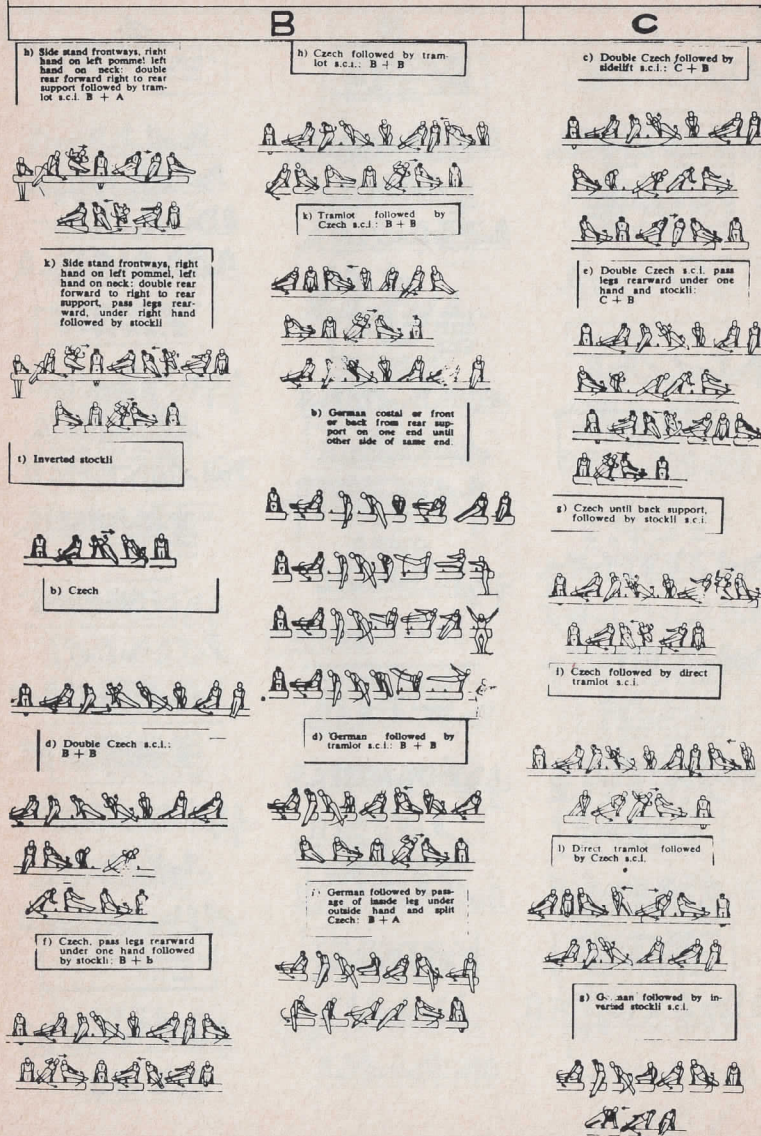 B
C
h) Side stand frontways, right
hand on left pommel left
hand on neck: double
rear forward right to rear
support followed by tram-
lot s.c.i. B + A
k) Side stand frontways, right
hand on left pommel, left
hand on neck: double rear
forward to right to rear
support, pass legs rear-
ward, under right hand
followed by stockli
t) Inverted stockli
b) Czech
d) Double Czech s.c.i.:
B + B
f) Czech, pass legs rearward
under one hand followed
by stockli: B + b
h) Czech followed by tram-
lot s.c.i.: B + B
k) Tramlot followed by
Czech s.c.i.: B + B
b) German costal or front
or back from rear sup-
port on one end until
other side of same end.
d) German followed by
tramlot s.c.i.: B + B
German followed by pass-
age of inside leg under
outside hand and split
Czech: B + A
c) Double Czech followed by
sidelift s.c.i.: C + B
e) Double Czech s.c.i. pass
legs rearward under one
hand and stockli:
C + B
g) Czech until back support,
followed by stockli s.c.i.
Czech followed by direct
tramlot s.c.i.
Direct tramlot followed
by Czech s.c.i.
followed by in-
verted stockli s.c.i.